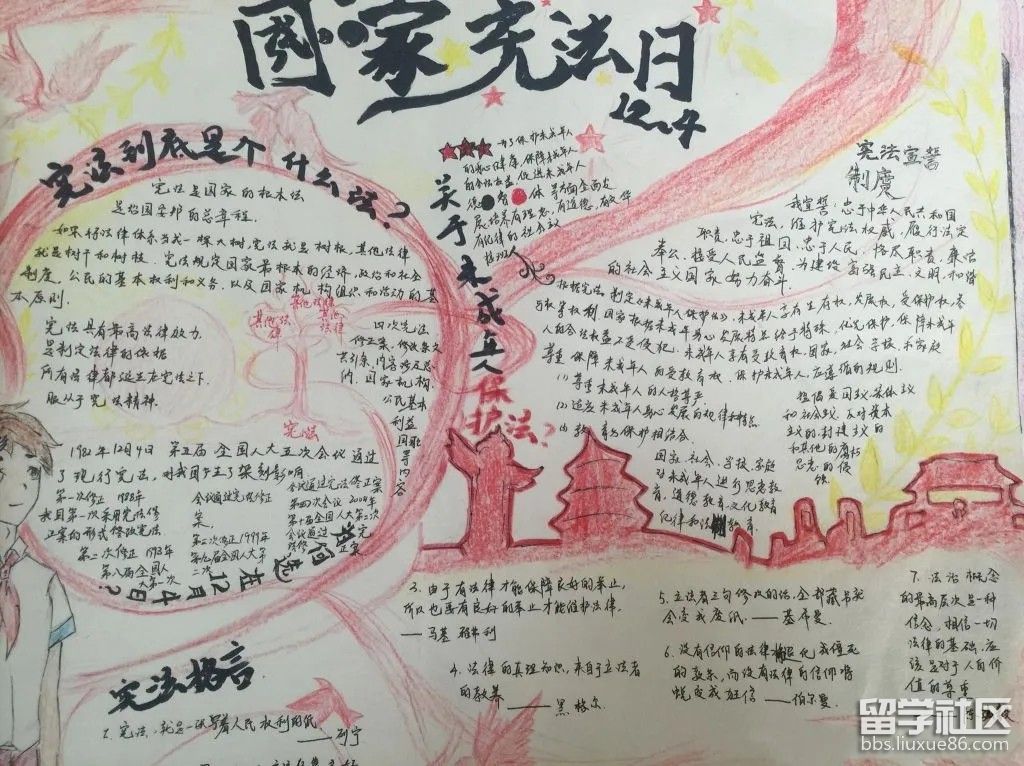 国家宪法日
12.4
宪法到底是个什么法?
宪法是国家的根本法
是治国安邦的总章程.
如果将法律体系当成一棵大树,宪法就是树根,其他法律
就是树干和树枝. 宪法规定国家最根本的经济,政治和社会
制度,公民的基本权利和义务,以及国家机构组织和活动的基
本原则.
宪法具有最高法律效力
是制定法律的依据
所有法律都诞生在宪法之下
服从于宪法精神.
其他法律
其他法律
其他法律
宪法
四次宪法
修正案,修改条文
公民基本
利益
1982年12月4日 第五届全国人大五次会议通过
了现行宪法,对我国产生了深刻影响
第一次修正 1988年
我国第一次采用宪法修
正案的形式修改宪法
第二次修正 1993年
第八届全国人
大第一次
会议通过宪法修正
案.
第三次修正1999年
第九届全国人大第
二次
会议通过宪法修正案
第四次会议 2004年
第十届全国人大第二次
会议通过宪法修正
为何选在12月4日?
关于未成年人保护法?
为了保护未成年人
的身心健康,保障未成年人
的合法权益,促进未成年人
德 智 体 等方面全面发
展,培养有理想,有道德,有文化
有纪律的社会主义
接班人
根据宪法,制定《未成年人保护法》.未成年人享有生存权,发展权,受保护权,参
与权等权利 国家根据未成年身心发展特点给予特殊,优先保护,保障未成年
人的合法权益不受侵犯.未成年人享有受教育权,国家,社会,学校和家庭
尊重 保障未成年人的受教育权.保护未成年人,应遵循的规则.
(1) 尊重未成年人的人格尊严
(2) 适应未成年人身心发展的规律和特点
(3) 教育与保护相结合.
国家,社会,学校,家庭
对未成年人进行思想教
育,道德教育,文化教育
纪律和法制教育.
提倡爱国主义,集体主义
和社会主义,反对资本
主义的,封建主义的
和其他的腐朽
思想的侵
蚀.
宪法宣誓
制度
我宣誓:忠于中华人民共和国
宪法,维护宪法权威,履行法定
职责,忠于祖国,忠于人民,恪尽职责,廉洁
奉公,接受人民监督,为建设富强民主,文明,和谐
的社会主义国家努力奋斗.
宪法格言
2. 宪法,就是一张写着人民权利的纸
——列宁
3. 由于有法律才能保障良好的举止,
所以也要有良好的举止才能维护法律.
——马基雅弗利
4. 法律的真理知识,来自于立法者
的教养 ——黑格尔
5. 立法者三句修改的话,全部藏书就
会变成废纸.——基希曼.
6. 没有信仰的法律将退化成僵死
的教条,而没有法律的信仰将
蜕变成狂信——伯尔曼.
7. 法治概念
的最高层次是一种
信念,相信一切
法律的基础,应
该是对于人的价
值的尊重
留学社区
bbs.liuxue86.com